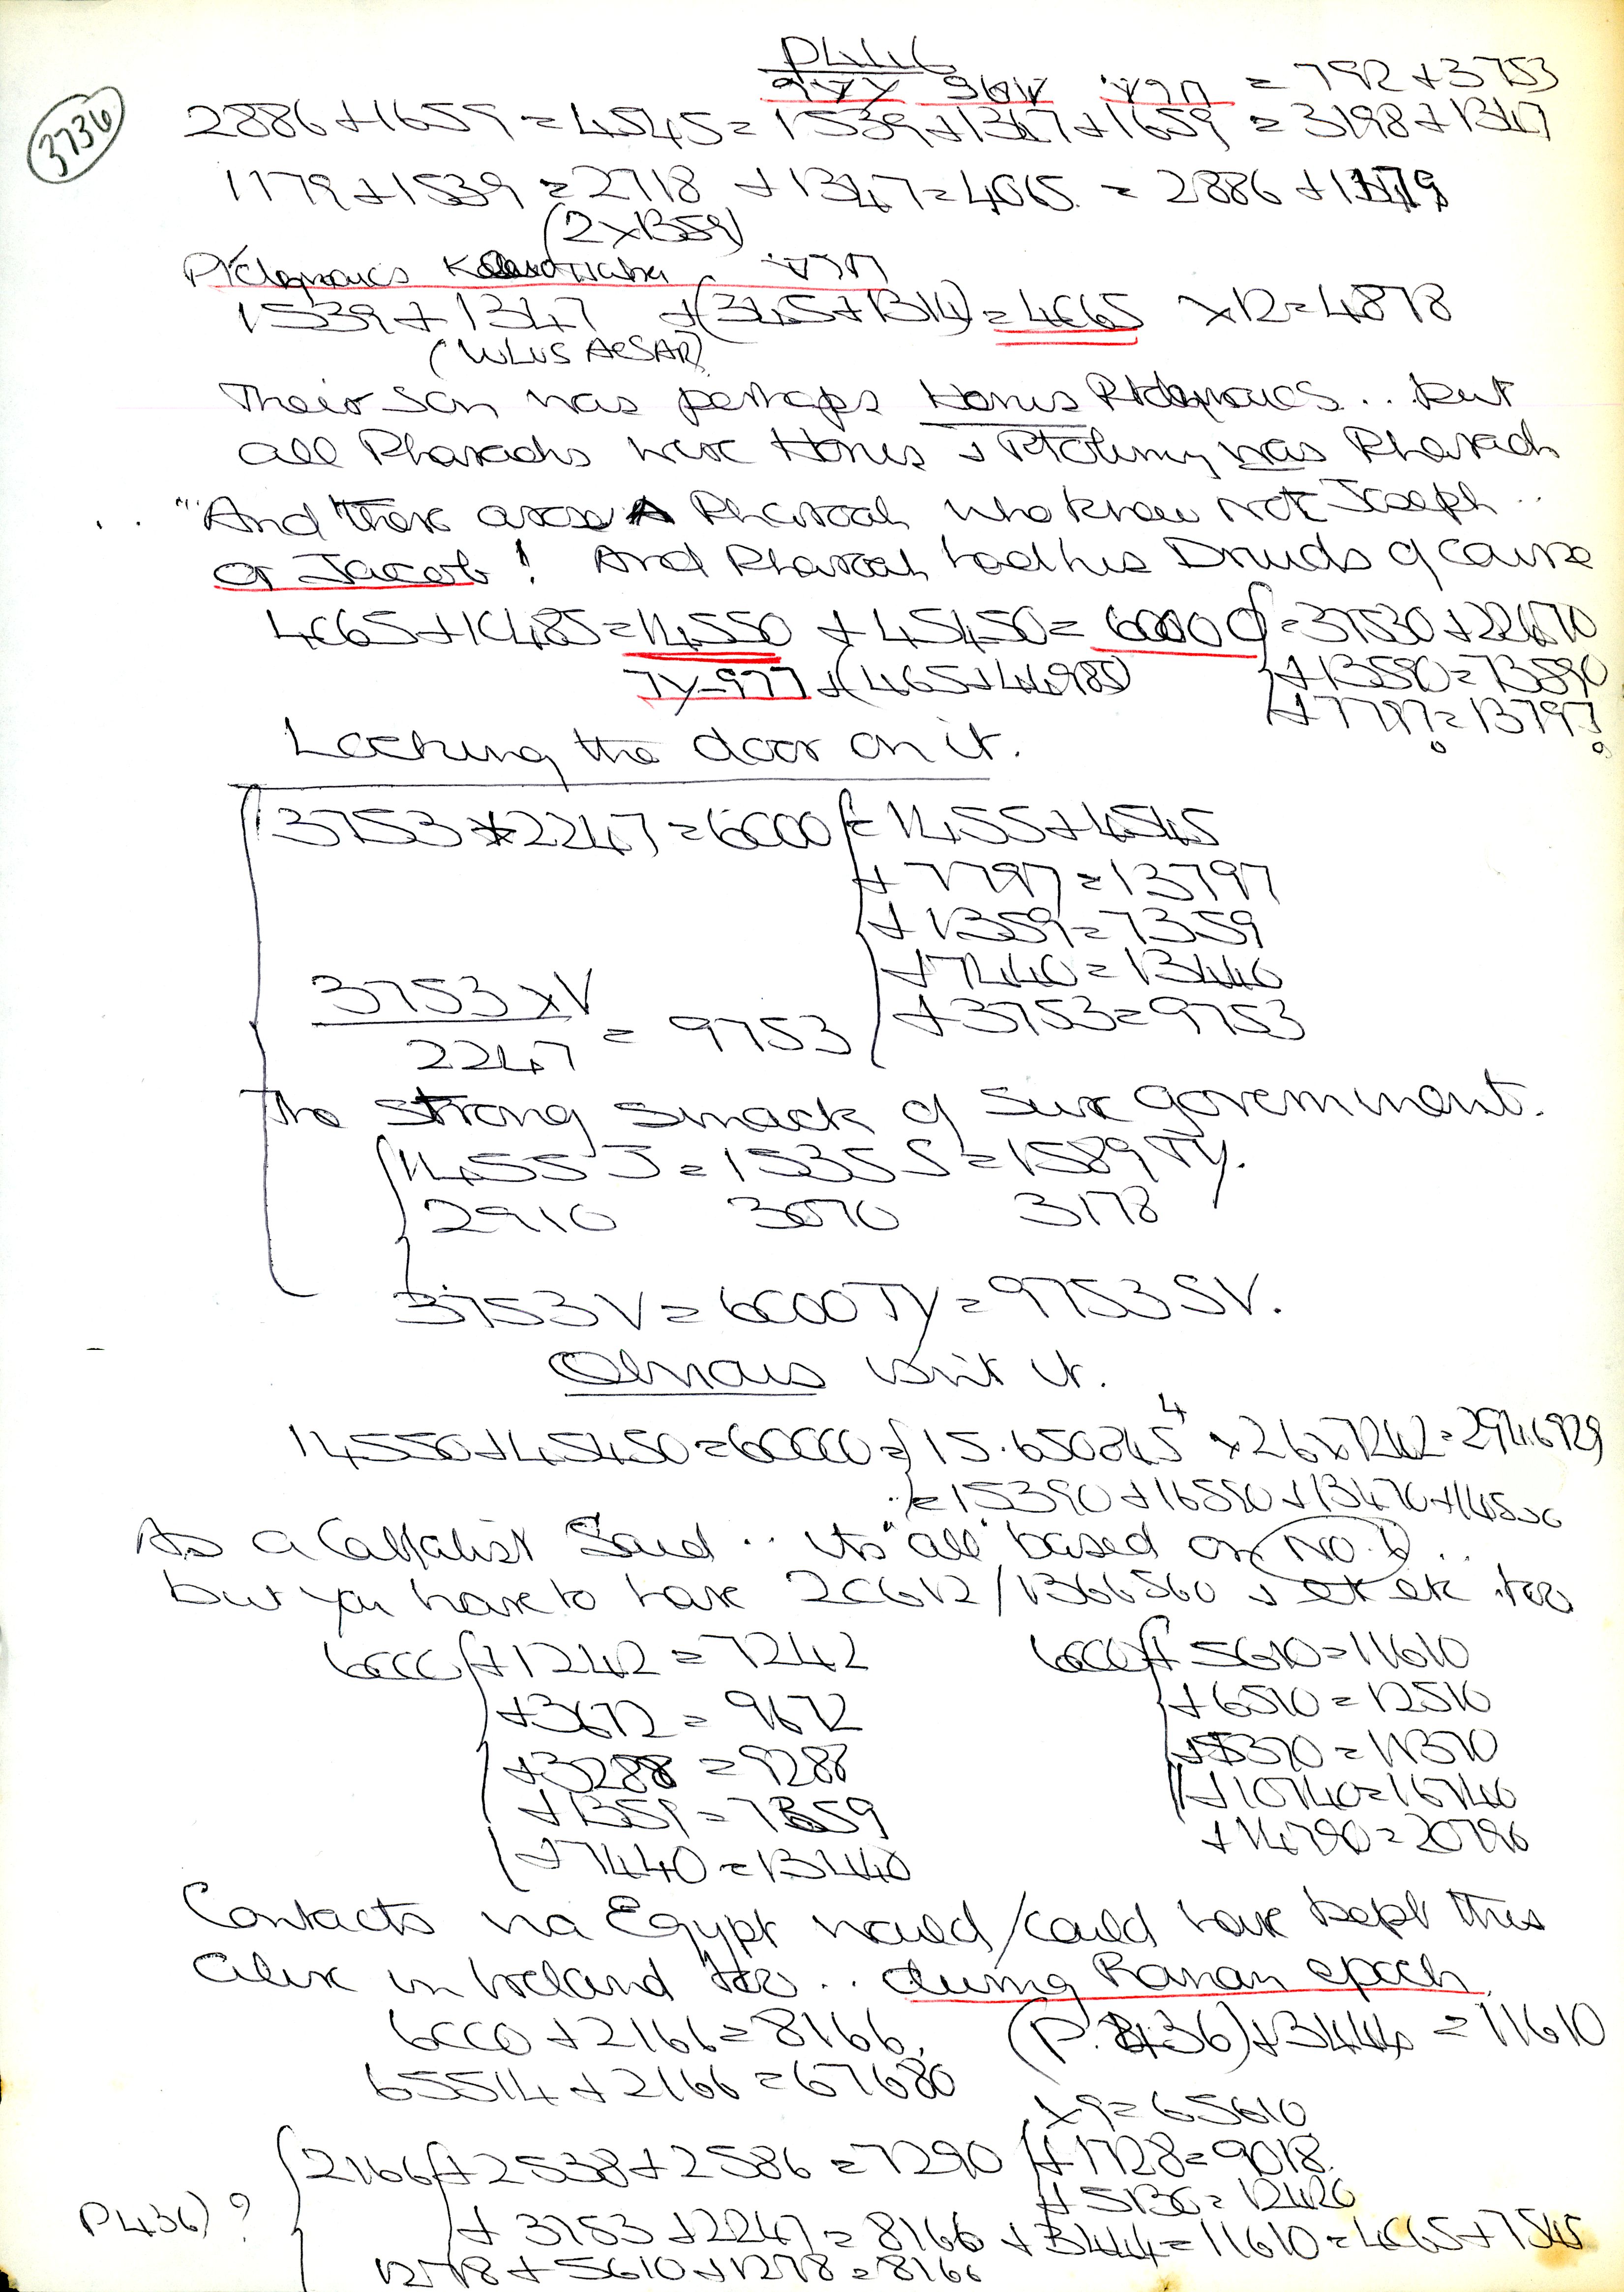 3736
= 792 + 3753
2886 + 1659 = 4545 = 1539 + 1347 + 1659 = 3198 + 1347
1179 + 1539 = 2718 + 1347 = 4065 = 2886 + 1179
(2 x 1359)
Ptolemaeus
1539 + 1347 + = 4065 x 12 = 4878
Their son was perhaps Horus Ptolemaeus .. but
all Pharaohs were Horus + Ptolemy was Pharaoh
.. "And there arose A Pharoah who knew not Joseph ..
or Jacob! And Pharoah had his Druids of course
4065 + 10485 = 14550 + 45450 = 60000 { = 37530 + 22470
+ 13590 = 73590
+ (465 + 44985)
Locking the door on it.
3753 + 2247 = 6000 { = 1455 + 4545
+ 7797 = 13797
+ 1359 = 7359
+ 7440 = 13440
3753 x V / 2247 = 9753 + 3753 = 9753
The strong smack of sure government.
1455 J = 1535 S = 1589 TY.
2910 3070 3178
3753 V = 6000 TY = 9753 SV.
Obvious isn't it.
14550 + 45450 = 60000 = { 15.650845⁴ x 26 x 1242 =
= 15390 + 16590 + 13470 + 14550
As a Cabbalist Said .. its "all" based on No. 6 ..
but you have to have 20612 / 1366560 + etc etc too
6000 { + 1242 = 7242 6000 { + 5610 = 11610
+ 3672 = 9672 + 6510 = 12510
+ 3288 = 9288 + 5370 = 11370
+ 1359 = 7359 + 10740 = 16740
+ 7440 = 13440 + 14790 = 20790
Contacts via Egypt would/could have kept this
alive in Ireland too .. during Roman epoch
6000 + 2166 = 8166. (P. 436) + 3444 = 11610
65514 + 2166 = 67680
x 9 = 65610
2166 { + 2538 + 2586 = 7290 { + 1728 = 9018.
+ 5130 = 12420
P436) ? + 3753 + 2247 = 8166 + 3444 = 11610 = 4065 + 7545
1278 + 5610 + 1278 = 8166